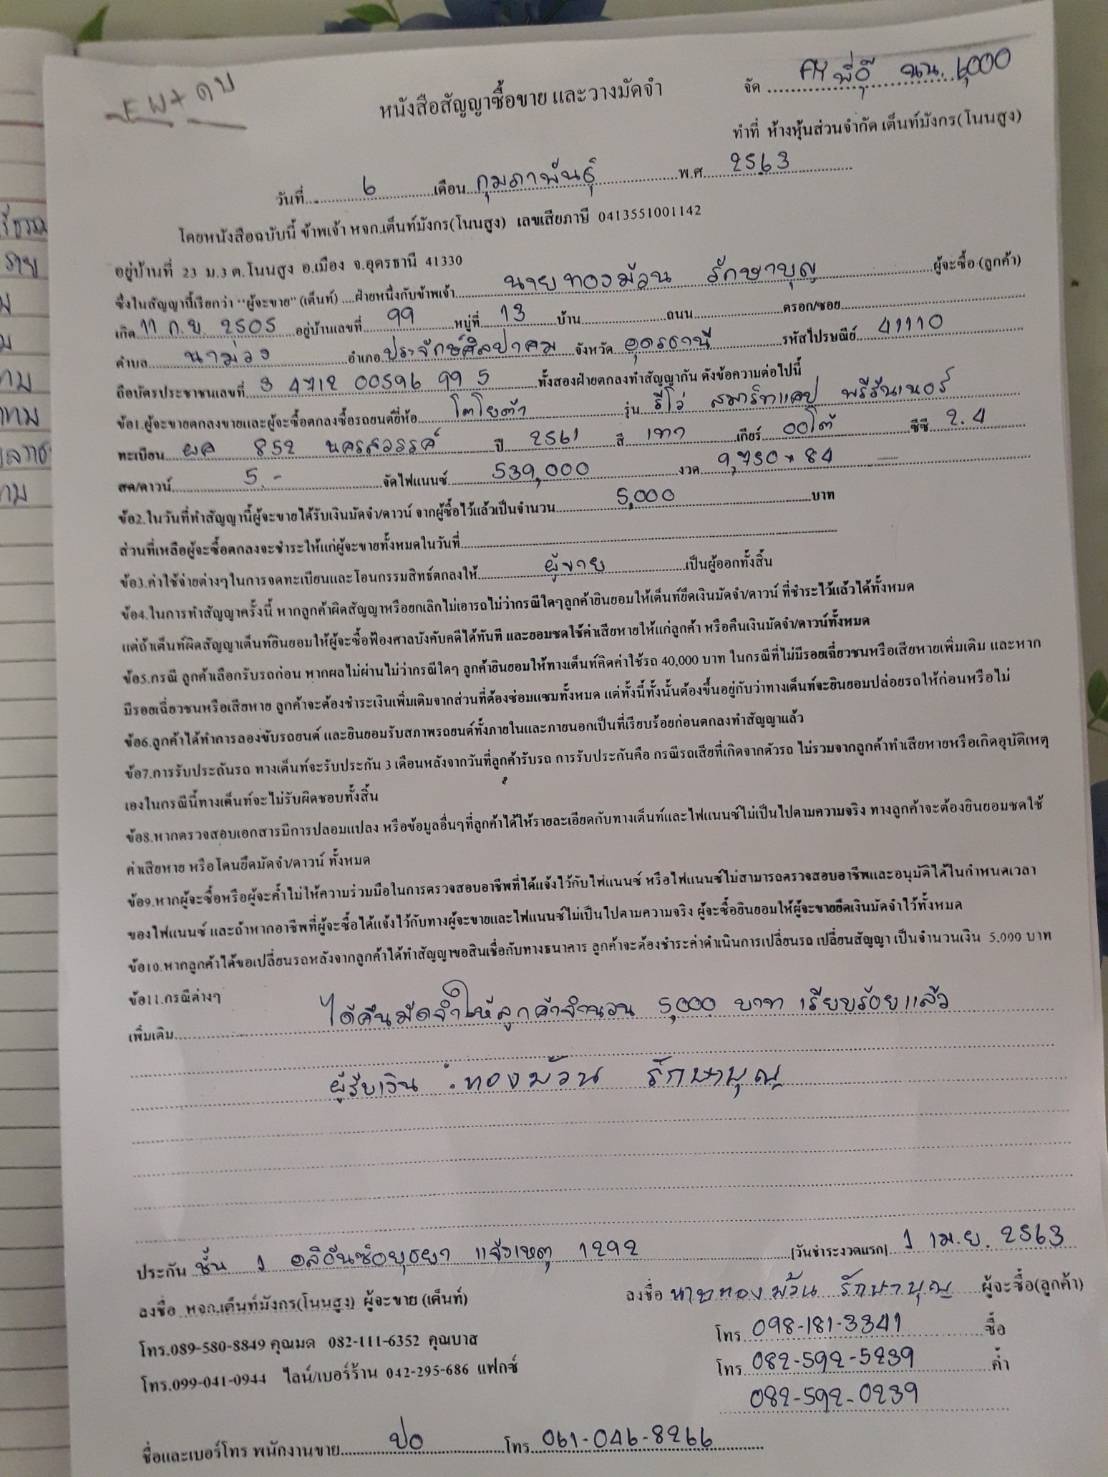 หนังสือสัญญาซื้อขาย และวางมัดจำ
จัด
ทำที่ ห้างหุ้นส่วนจำกัด เต็นท์มังกร(โนนสูง)
วันที่ 6 เดือน กุมภาพันธุ์ พ.ศ 2563
โดยหนังสือฉบับนี้ ข้าพเจ้า หจก.เต็นท์มังกร(โนนสูง) เลขเสียภาษี 0413551001142
อยู่บ้านที่ 23 ม.3 ต.โนนสูง อ.เมือง จ.อุดรธานี 41330
ซึ่งในสัญญานี้เรียกว่า "ผู้จะขาย" (เต็นท์) ฝ่ายหนึ่งกับข้าพเจ้า นายทองม้วน รักษาบุญ ผู้จะซื้อ (ลูกค้า)
เกิด 11 ก.ย. 2505 อยู่บ้านเลขที่ 99 หมู่ที่ 13 บ้าน ถนน ตรอก/ซอย
ตำบล นาม่วง อำเภอ ประจักษ์ศิลปาคม จังหวัด อุดรธานี รหัสไปรษณีย์ 41110
ถือบัตรประชาชนเลขที่ 3 4712 00596 99 5 ทั้งสองฝ่ายตกลงทำสัญญากัน ดังข้อความต่อไปนี้
ข้อ1.ผู้จะขายตกลงขายและผู้จะซื้อตกลงซื้อรถยนต์ยี่ห้อ โตโยต้า รุ่น รีโว่ สมาร์ทแคป พรีรันเนอร์
ทะเบียน ผค 852 นครสวรรค์ ปี 2561 สี เทา เกียร์ ออโต้ ซีซี 2.4
สด/ดาวน์ 5.- จัดไฟแนนซ์ 539,000 งวด 9,730 x 84
ข้อ2.ในวันที่ทำสัญญานี้ผู้จะขายได้รับเงินมัดจำ/ดาวน์ จากผู้ซื้อไว้แล้วเป็นจำนวน 5,000 บาท
ส่วนที่เหลือผู้จะซื้อตกลงจะชำระให้แก่ผู้จะขายทั้งหมดในวันที่
ข้อ3.ค่าใช้จ่ายต่างๆในการจดทะเบียนและโอนกรรมสิทธิ์ตกลงให้ ผู้ขาย เป็นผู้ออกทั้งสิ้น
ข้อ4.ในการทำสัญญาครั้งนี้ หากลูกค้าผิดสัญญาหรือยกเลิกไม่เอารถไม่ว่ากรณีใดๆลูกค้ายินยอมให้เต็นท์ยึดเงินมัดจำ/ดาวน์ ที่ชำระไว้แล้วได้ทั้งหมด
แต่ถ้าเต็นท์ผิดสัญญาเต็นท์ยินยอมให้ผู้จะซื้อฟ้องศาลบังคับคดีได้ทันที และยอมชดใช้ค่าเสียหายให้แก่ลูกค้า หรือคืนเงินมัดจำ/ดาวน์ทั้งหมด
ข้อ5.กรณี ลูกค้าเลือกรับรถก่อน หากผลไม่ผ่านไม่ว่ากรณีใดๆ ลูกค้ายินยอมให้ทางเต็นท์คิดค่าใช้รถ 40,000 บาท ในกรณีที่ไม่มีรอยเฉี่ยวชนหรือเสียหายเพิ่มเติม และหาก
มีรอยเฉี่ยวชนหรือเสียหาย ลูกค้าจะต้องชำระเงินเพิ่มเติมจากส่วนที่ต้องซ่อมแซมทั้งหมด แต่ทั้งนี้ทั้งนั้นต้องขึ้นอยู่กับว่าทางเต็นท์จะยินยอมปล่อยรถให้ก่อนหรือไม่
ข้อ6.ลูกค้าได้ทำการลองขับรถยนต์ และยินยอมรับสภาพรถยนต์ทั้งภายในและภายนอกเป็นที่เรียบร้อยก่อนตกลงทำสัญญาแล้ว
ข้อ7.การรับประกันรถ ทางเต็นท์จะรับประกัน 3 เดือนหลังจากวันที่ลูกค้ารับรถ การรับประกันคือ กรณีรถเสียที่เกิดจากตัวรถ ไม่รวมจากลูกค้าทำเสียหายหรือเกิดอุบัติเหตุ
เองในกรณีนี้ทางเต็นท์จะไม่รับผิดชอบทั้งสิ้น
ข้อ8.หากตรวจสอบเอกสารมีการปลอมแปลง หรือข้อมูลอื่นๆที่ลูกค้าได้ให้รายละเอียดกับทางเต็นท์และไฟแนนซ์ไม่เป็นไปตามความจริง ทางลูกค้าจะต้องยินยอมชดใช้
ค่าเสียหาย หรือโดนยึดมัดจำ/ดาวน์ ทั้งหมด
ข้อ9.หากผู้จะซื้อหรือผู้จะค้ำไม่ให้ความร่วมมือในการตรวจสอบอาชีพที่ได้แจ้งไว้กับไฟแนนซ์ หรือไฟแนนซ์ไม่สามารถตรวจสอบอาชีพและอนุมัติได้ในกำหนดเวลา
ของไฟแนนซ์ และถ้าหากอาชีพที่ผู้จะซื้อได้แจ้งไว้กับทางผู้จะขายและไฟแนนซ์ไม่เป็นไปตามความจริง ผู้จะซื้อยินยอมให้ผู้จะขายยึดเงินมัดจำไว้ทั้งหมด
ข้อ10.หากลูกค้าได้ขอเปลี่ยนรถหลังจากลูกค้าได้ทำสัญญาขอสินเชื่อกับทางธนาคาร ลูกค้าจะต้องชำระค่าดำเนินการเปลี่ยนรถ เปลี่ยนสัญญา เป็นจำนวนเงิน 5,000 บาท
ข้อ11.กรณีต่างๆ
เพิ่มเติม ได้คืนมัดจำให้ลูกค้าจำนวน 5,000 บาท เรียบร้อยแล้ว
ผู้รับเงิน : ทองม้วน รักษาบุญ
ประกัน ชั้น 1 อลิอันซ์อยุธยา แจ้งเหตุ 1292 (วันชำระงวดแรก) 1 เม.ย. 2563
ลงชื่อ หจก.เต็นท์มังกร(โนนสูง) ผู้จะขาย (เต็นท์) ลงชื่อ นายทองม้วน รักษาบุญ ผู้จะซื้อ(ลูกค้า)
โทร.089-580-8849 คุณมด 082-111-6352 คุณบาส โทร 098-181-3341 ซื้อ
โทร.099-041-0944 ไลน์/เบอร์ร้าน 042-295-686 แฟกซ์ โทร 082-592-5239 ค้ำ
082-592-0239
ชื่อและเบอร์โทร พนักงานขาย ปอ โทร 061-046-8266